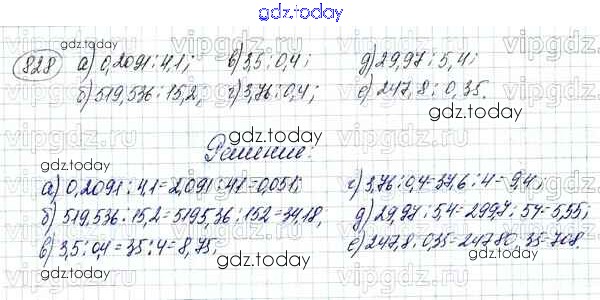 gdz.today
828 а) 0,2091 : 4,1; в) 3,5 : 0,4; д) 29,97 : 5,4;
gdz.today
б) 519,536 : 15,2; г) 3,76 : 0,4; е) 247,8 : 0,35.
gdz.today
Решение:
а) 0,2091 : 4,1 = 2,091 : 41 = 0,051; г) 3,76 : 0,4 = 37,6 : 4 = 9,4;
б) 519,536 : 15,2 = 5195,36 : 152 = 34,18; д) 29,97 : 5,4 = 299,7 : 54 = 5,55;
в) 3,5 : 0,4 = 35 : 4 = 8,75; е) 247,8 : 0,35 = 24780 : 35 = 708.
gdz.today
vipgdz.ru